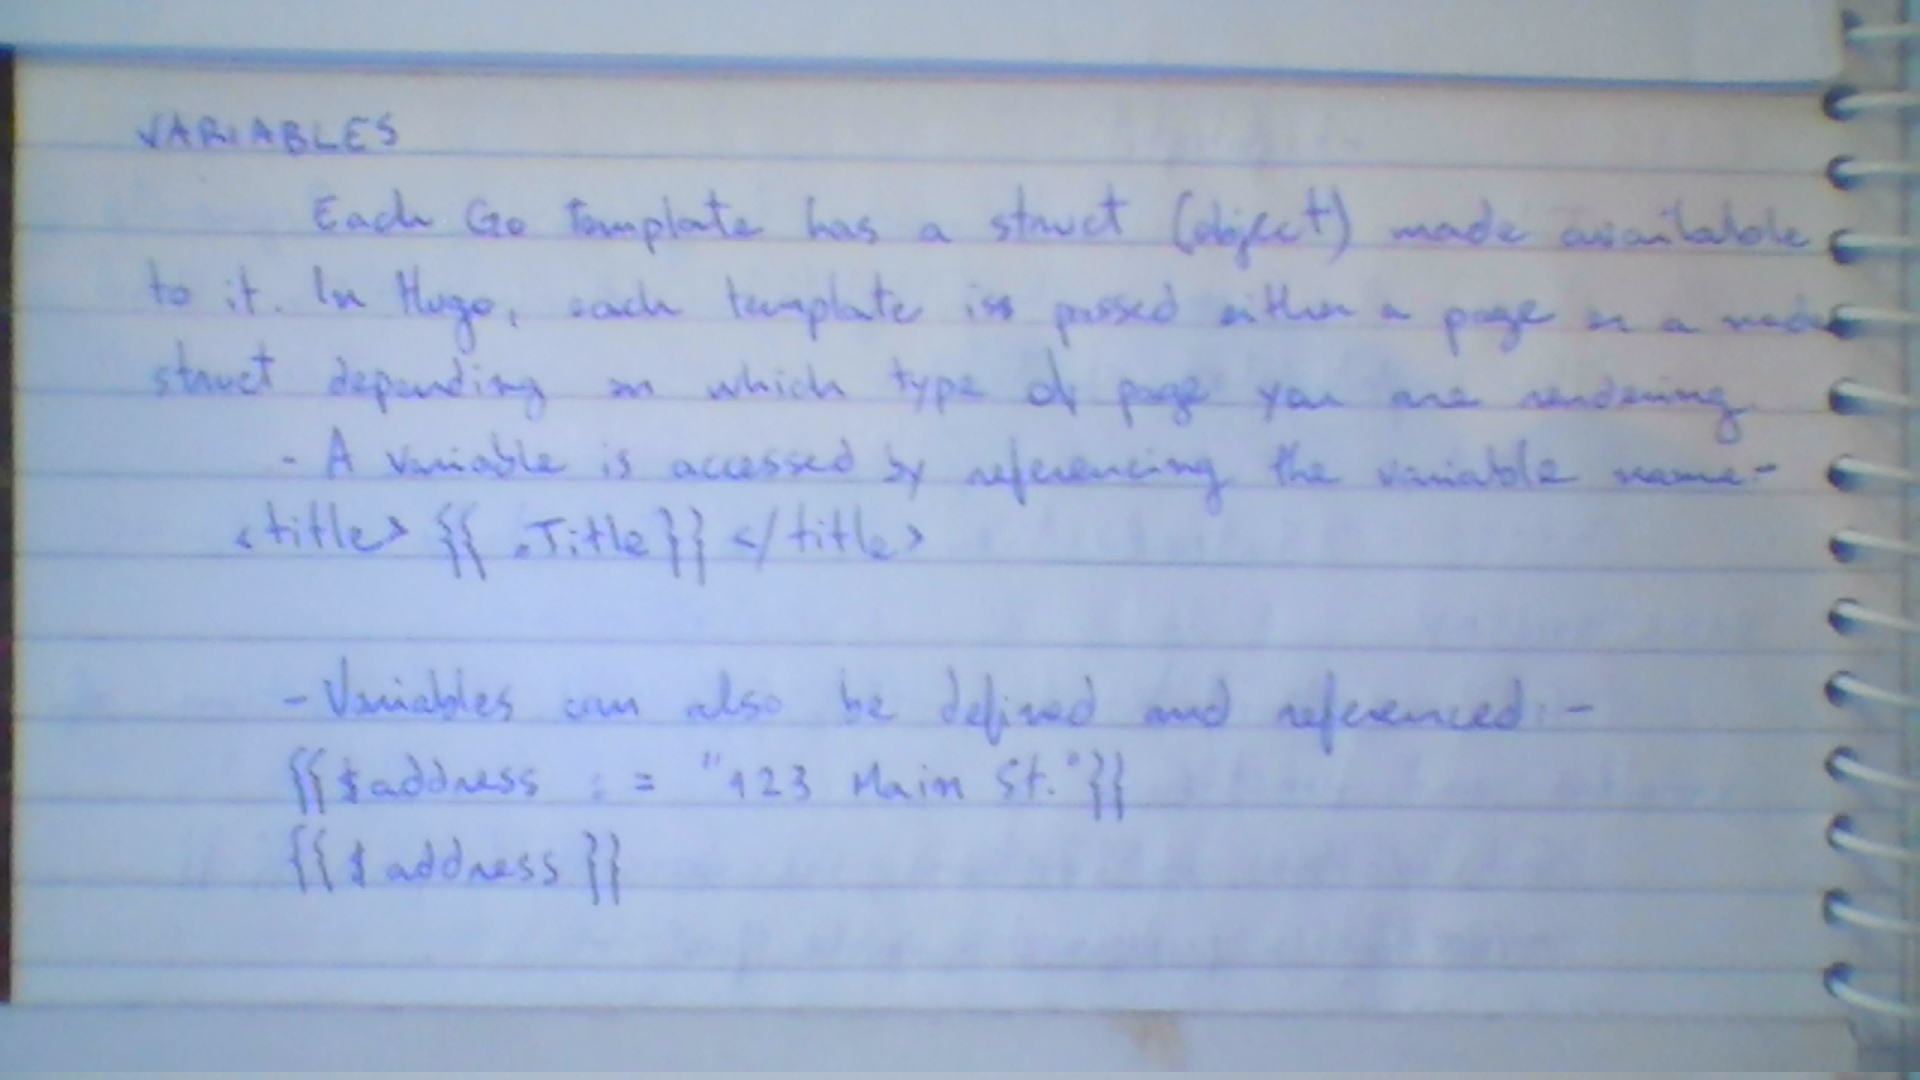 VARIABLES
Each Go Template has a struct (object) made available
to it. In Hugo, each template is passed either a page or a node
struct depending on which type of page you are rendering
- A variable is accessed by referencing the variable name-
<title> {{ .Title}} </title>
- Variables can also be defined and referenced:-
{{$address := "123 Main St."}}
{{$address}}